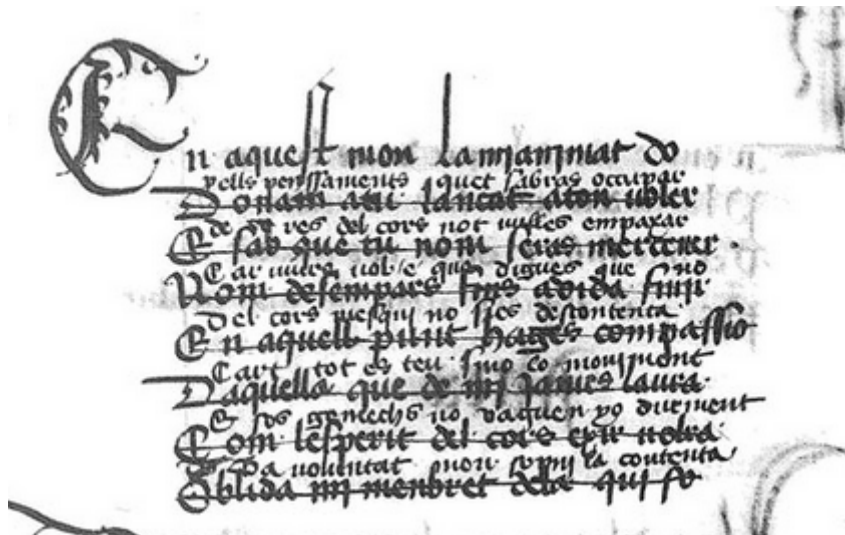 En aquest mon la mi animat do
pells penssaments quet sabras occupar
Donam a tu lançat a ton
de res del cors not vulles empaxar
E sab que tu nom seras
Car viure vol e que digues que no
Nom desempars fins a vida finir
Del cors mesqui no sies descontenta
En aquell punt hages compassio
Cart tot es teu sino co moviment
Daquella que de mi james
E sos gemechs no yo durment
Com lesperit del cors exir volra
Sa voluntat mon sopni la contenta
Oblida mi menbret dela qui so